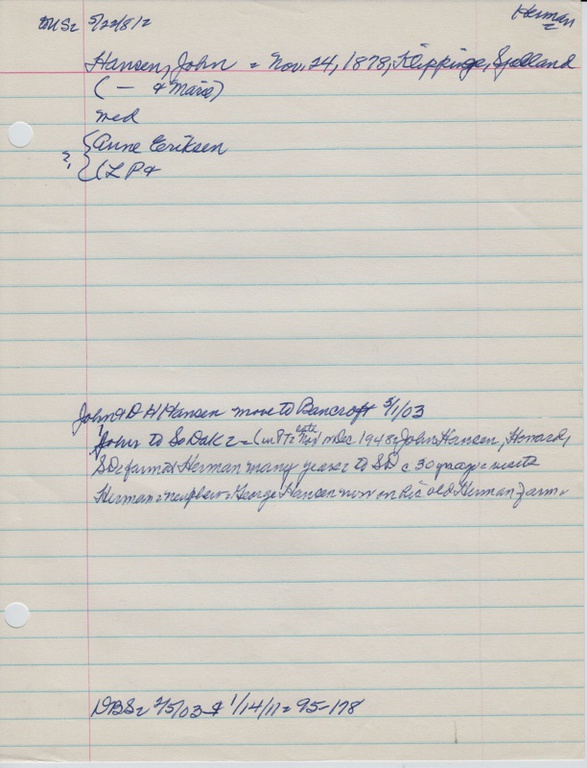 Herman
5/22/81
Hansen, John = Nov. 24, 1878, Klippinge, Sjelland
( — & Marie)
med
? { Anne Eriksen
(L P+
John & D H Hansen move to Bancroft 5/1/03
John to So Dak = (in late Nov in Dec 1948, John Hansen, Howard,
SD farmed Herman many years to SD c 30 yrs ago visits
Herman = nephew = George Hansen now on his old Herman farm.
DBS = 2/5/03 & 1/14/11 = 95-178